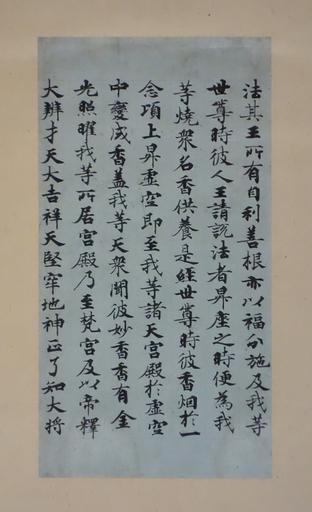 法其王所有自利善根亦以福分施及我等
世尊時彼人王請說法者昇座之時便為我
等燒衆名香供養是經世尊時彼香烟於一
念頃上昇虛空即至我等諸天宮殿於虛空
中變成香蓋我等天衆聞彼妙香香有金
光照曜我等所居宮殿乃至梵宮及以帝釋
大辯才天大吉祥天堅牢地神正了知大將